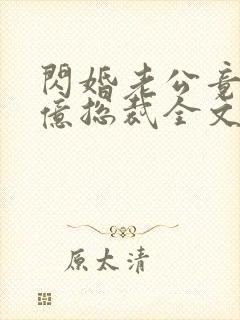 閃婚老公竟
億总裁全文
原太清